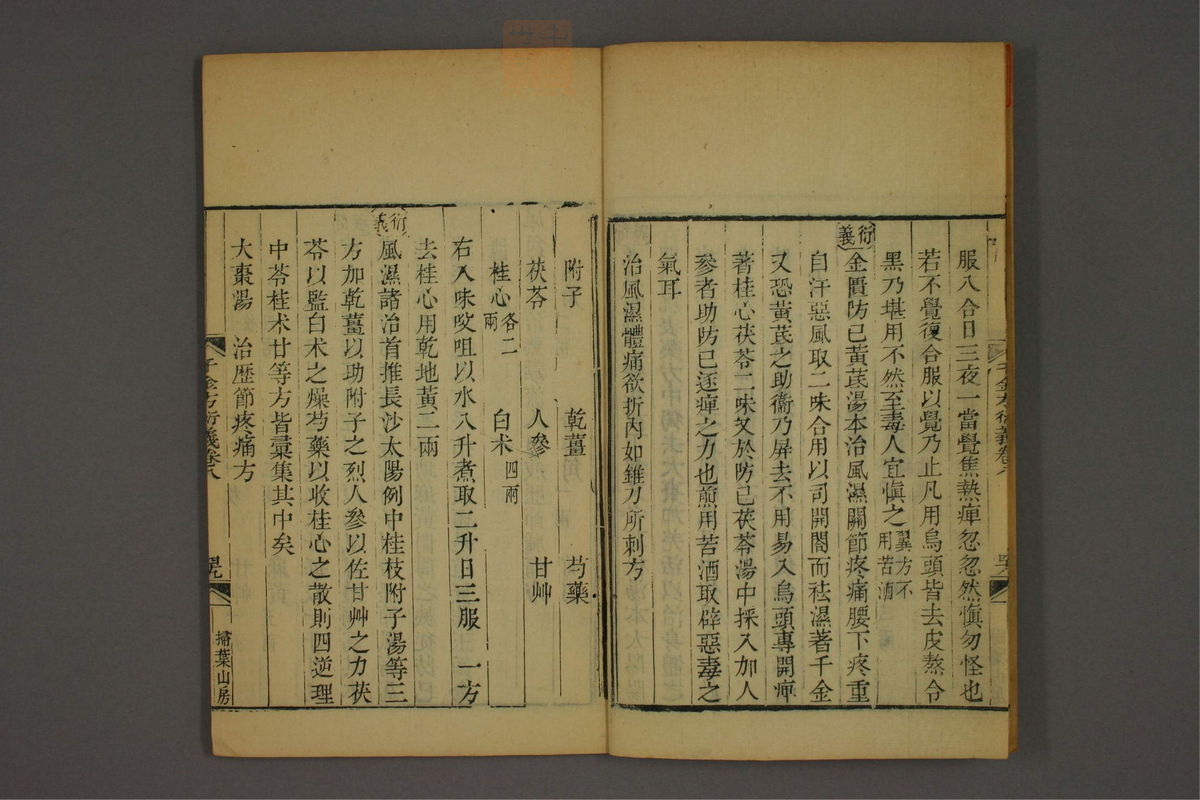 服八合日三夜一當覺焦熱痺忽忽然愼勿怪也
若不覺復合服以覺乃止凡用烏頭皆去皮熬令
黑乃堪用不然至毒人宜愼之翼方不用苦酒
衍義
金匱防已黃芪湯本治風濕關節疼痛腰下疼重
自汗惡風取二味合用以司開闔而袪濕著千金
又恐黃芪之助衞乃屏去不用易入烏頭專開痺
著桂心茯苓二味又於防已茯苓湯中採入加人
參者助防已逐痺之力也煎用苦酒取辟惡毒之
氣耳
治風濕體痛欲折內如錐刀所刺方
附子 乾薑 芍藥
茯苓 人參 甘艸
桂心各二兩 白术四兩
右八味㕮咀以水八升煮取二升日三服 一方
去桂心用乾地黃二兩
衍義
風濕諸治首推長沙太陽例中桂枝附子湯等三
方加乾薑以助附子之烈人參以佐甘艸之力茯
苓以監白术之燥芍藥以收桂心之散則四逆理
中苓桂术甘等方皆彙集其中矣
大棗湯 治歷節疼痛方
千金方衍義卷八
掃葉山房